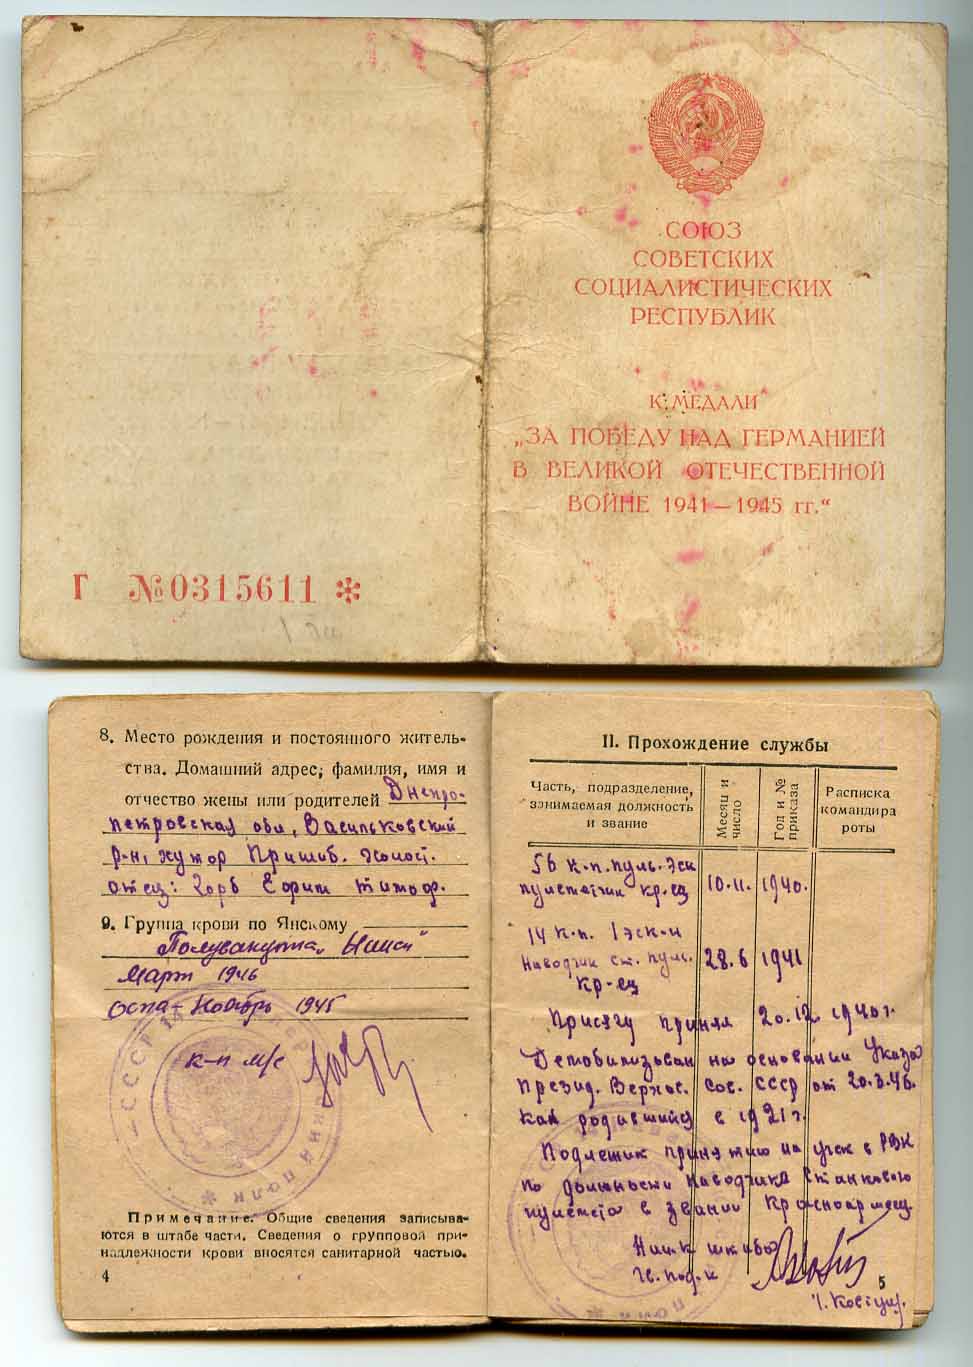 СОЮЗ
СОВЕТСКИХ
СОЦИАЛИСТИЧЕСКИХ
РЕСПУБЛИК
К МЕДАЛИ
„ЗА ПОБЕДУ НАД ГЕРМАНИЕЙ
В ВЕЛИКОЙ ОТЕЧЕСТВЕННОЙ
ВОЙНЕ 1941—1945 гг.“
Г №0315611 *
8. Место рождения и постоянного житель-
ства. Домашний адрес, фамилия, имя и
отчество жены или родителей Днепро-
петровская обл, Васильковский
р-н, хутор Пришиб. Холост.
отец: Горб Ефим Тимоф.
9. Группа крови по Янскому
март 1946
оспа - Ноябрь 1945
к-н м/с
СССР
ПОЛК *
Примечание. Общие сведения записыва-
ются в штабе части. Сведения о групповой при-
надлежности крови вносятся санитарной частью.
4
II. Прохождение службы
Часть, подразделение, занимаемая должность и звание
Месяц и число
Год и № приказа
Расписка командира роты
56 к.п. пуль. эск
пулеметчик кр-ец 10.11. 1940.
14 к.п. 1 эск-н
Наводчик ст. пул. 28.6 1941
кр-ец
Присягу принял 20.12. 1940 г.
Демобилизован на основании Указа
Презид. Верхов. Сов. СССР от 20.3.46.
как родившийся в 1921 г.
Подлежит принятию на учет в РВК
по должности наводчика станкового
пулемета в звании Красноармеец.
Нач-к штаба
Гв. под-к
5